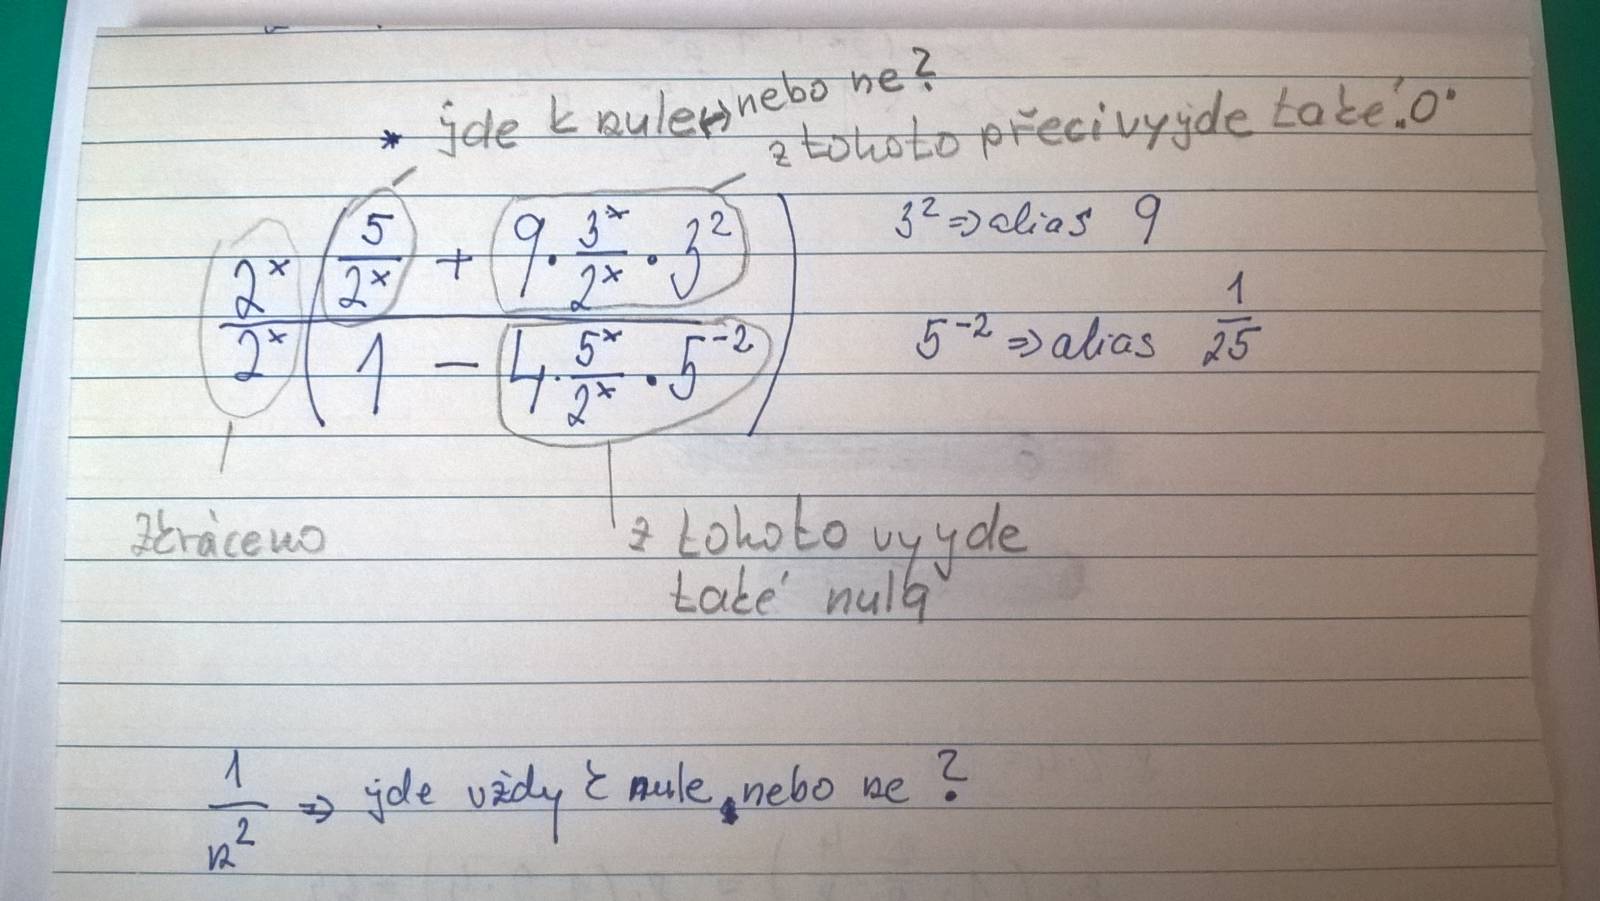 * jde k nule↔nebo ne?
z tohoto přeci vyjde také „0"
2^x/2^x ( (5/2^x + 9 · 3^x/2^x · 3^2) / (1 − 4 · 5^x/2^x · 5^-2) )
3^2 ⇒ alias 9
5^-2 ⇒ alias 1/25
zkráceno
z tohoto vyjde
také nula
1/n^2 ⇒ jde vždy k nule, nebo ne?